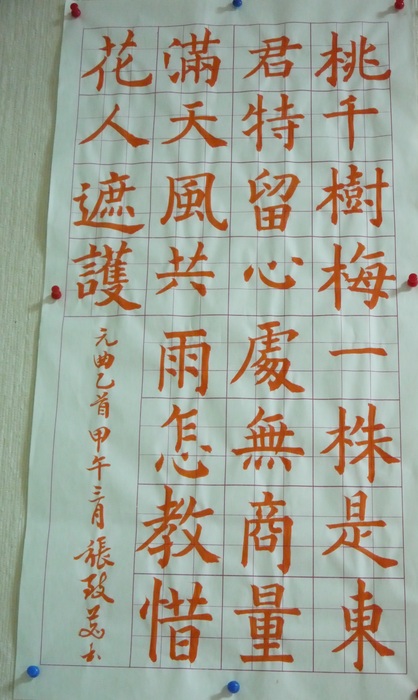 桃千樹梅一株是東
君特留心處無商量
滿天風共雨怎教惜
花人遮護
元曲乙首甲午三月張致益书